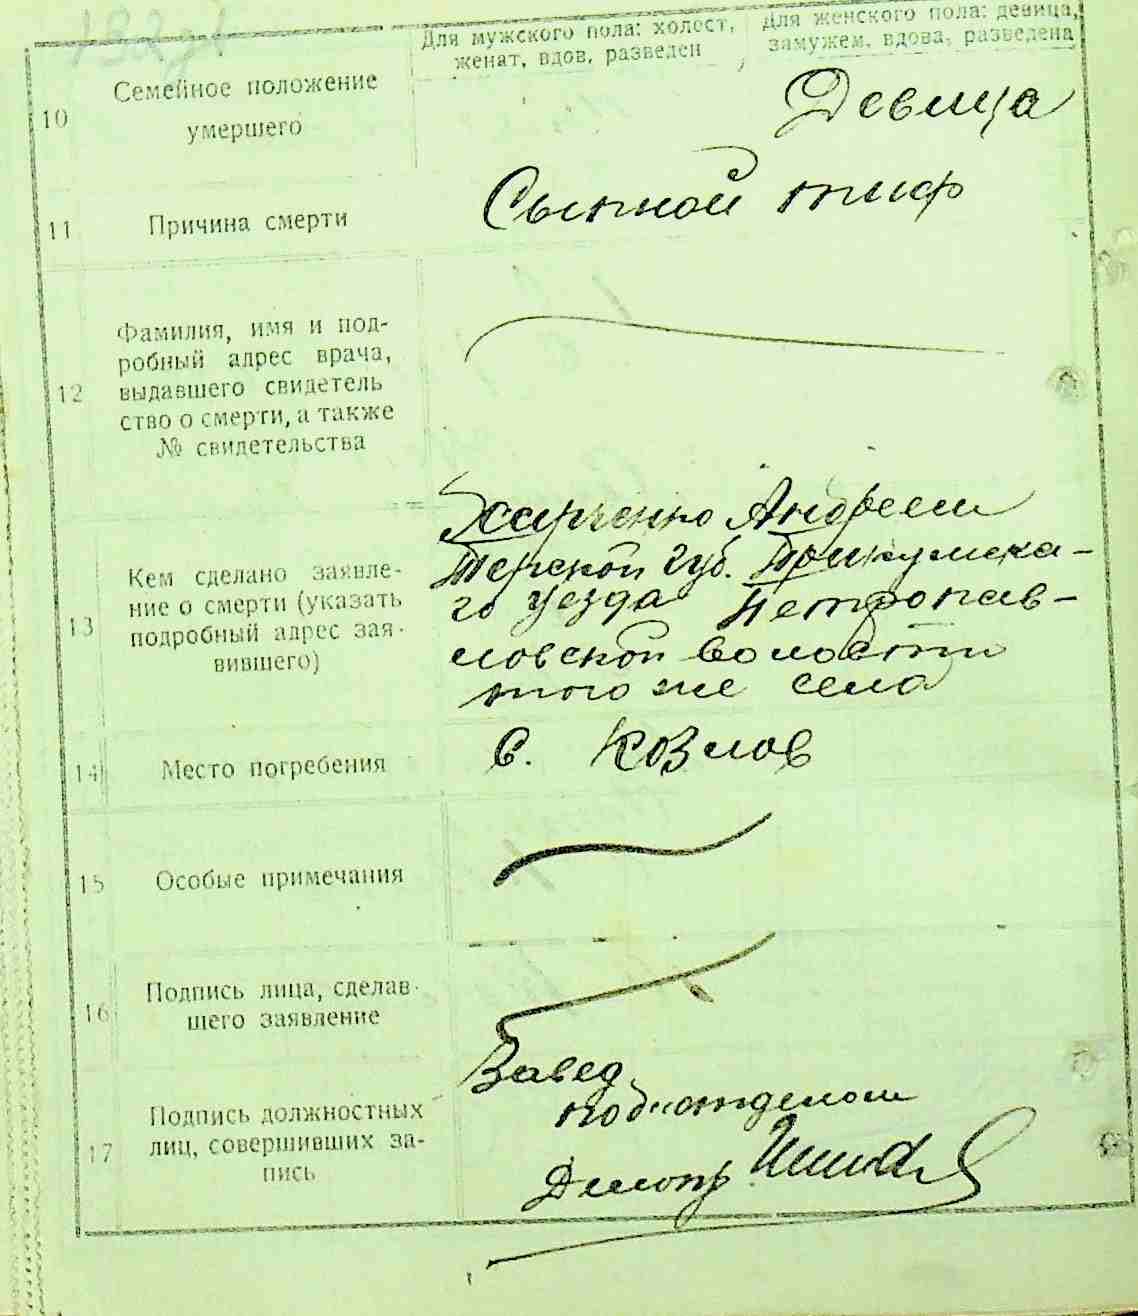 Для мужского пола: холост, женат, вдов, разведен
Для женского пола: девица, замужем, вдова, разведена
10 Семейное положение умершего
Девица
11 Причина смерти
Сыпной тиф
12 Фамилия, имя и под-
робный адрес врача,
выдавшего свидетель
ство о смерти, а также
№ свидетельства
13 Кем сделано заявле-
ние о смерти (указать
подробный адрес зая-
вившего)
Харченко Андреем
Терской губ. Прикумска-
го уезда Петропав-
ловской волости
того же села
14 Место погребения
Козлов
15 Особые примечания
16 Подпись лица, сделав-
шего заявление
17 Подпись должностных
лиц, совершивших за-
пись
Завед.
подотделом
Делопр.